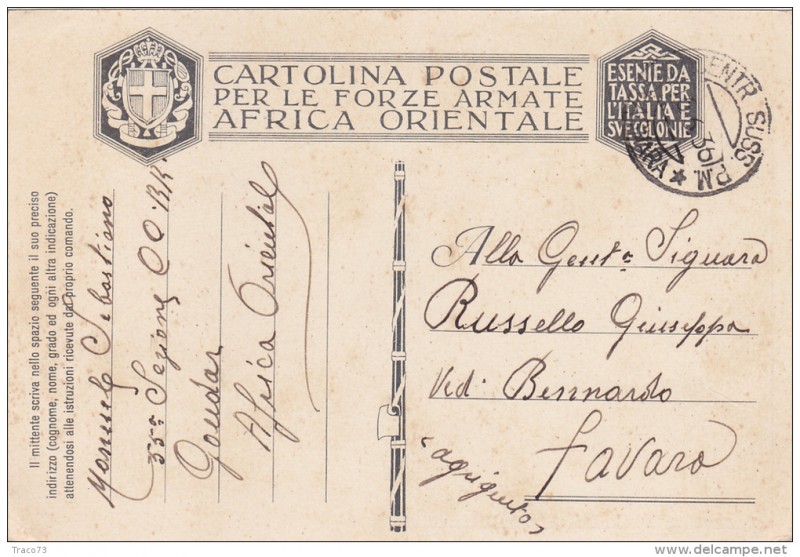 CARTOLINA POSTALE
PER LE FORZE ARMATE
AFRICA ORIENTALE
ESENTE DA
TASSA PER
L'ITALIA E
SVE COLONIE
CENTR SUSS P.M.
Il mittente scriva nello spazio seguente il suo preciso
indirizzo (cognome, nome, grado ed ogni altra indicazione)
attenendosi alle istruzioni ricevute dal proprio comando.
Sebastiano
33ª Sezione CC RR
Gondar
Africa Orientale
Alla Gent.a Signiara
Russello Giuseppa
Ved. Bennardo
Favara
(agrigento)
Traco73
www.delcampe.net